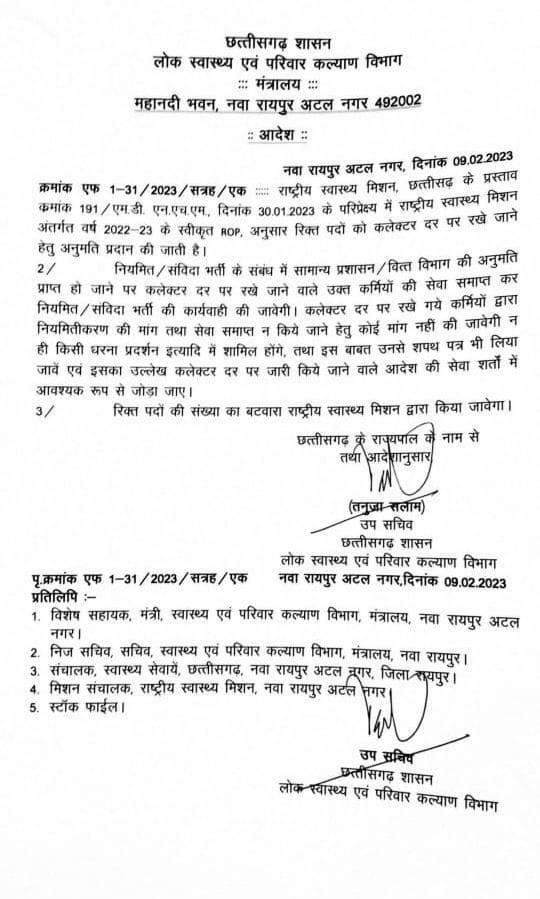 छत्तीसगढ़ शासन
लोक स्वास्थ्य एवं परिवार कल्याण विभाग
::: मंत्रालय :::
महानदी भवन, नवा रायपुर अटल नगर 492002
:: आदेश ::
नवा रायपुर अटल नगर, दिनांक 09.02.2023
क्रमांक एफ 1-31/2023/सत्रह/एक ::::: राष्ट्रीय स्वास्थ्य मिशन, छत्तीसगढ़ के प्रस्ताव
कमांक 191/एम.डी. एन.एच.एम., दिनांक 30.01.2023 के परिप्रेक्ष्य में राष्ट्रीय स्वास्थ्य मिशन
अंतर्गत वर्ष 2022-23 के स्वीकृत ROP, अनुसार रिक्त पदों को कलेक्टर दर पर रखे जाने
हेतु अनुमति प्रदान की जाती है।
2/ नियमित/संविदा भर्ती के संबंध में सामान्य प्रशासन/वित्त विभाग की अनुमति
प्राप्त हो जाने पर कलेक्टर दर पर रखे जाने वाले उक्त कर्मियों की सेवा समाप्त कर
नियमित/संविदा भर्ती की कार्यवाही की जावेगी। कलेक्टर दर पर रखे गये कर्मियों द्वारा
नियमितीकरण की मांग तथा सेवा समाप्त न किये जाने हेतु कोई मांग नहीं की जावेगी न
ही किसी धरना प्रदर्शन इत्यादि में शामिल होंगे, तथा इस बाबत उनसे शपथ पत्र भी लिया
जावें एवं इसका उल्लेख कलेक्टर दर पर जारी किये जाने वाले आदेश की सेवा शर्तो में
आवश्यक रूप से जोड़ा जाए।
3/ रिक्त पदों की संख्या का बटवारा राष्ट्रीय स्वास्थ्य मिशन द्वारा किया जावेगा।
छत्तीसगढ़ के राज्यपाल के नाम से
तथा आदेशानुसार
(तनुजा सलाम)
उप सचिव
छत्तीसगढ़ शासन
लोक स्वास्थ्य एवं परिवार कल्याण विभाग
पृ.क्रमांक एफ 1-31/2023/सत्रह/एक नवा रायपुर अटल नगर,दिनांक 09.02.2023
प्रतिलिपि :–
1. विशेष सहायक, मंत्री, स्वास्थ्य एवं परिवार कल्याण विभाग, मंत्रालय, नवा रायपुर अटल
नगर।
2. निज सचिव, सचिव, स्वास्थ्य एवं परिवार कल्याण विभाग, मंत्रालय, नवा रायपुर।
3. संचालक, स्वास्थ्य सेवायें, छत्तीसगढ़, नवा रायपुर अटल नगर, जिला रायपुर।
4. मिशन संचालक, राष्ट्रीय स्वास्थ्य मिशन, नवा रायपुर अटल नगर
5. स्टॉक फाईल।
उप सचिव
छत्तीसगढ़ शासन
लोक स्वास्थ्य एवं परिवार कल्याण विभाग